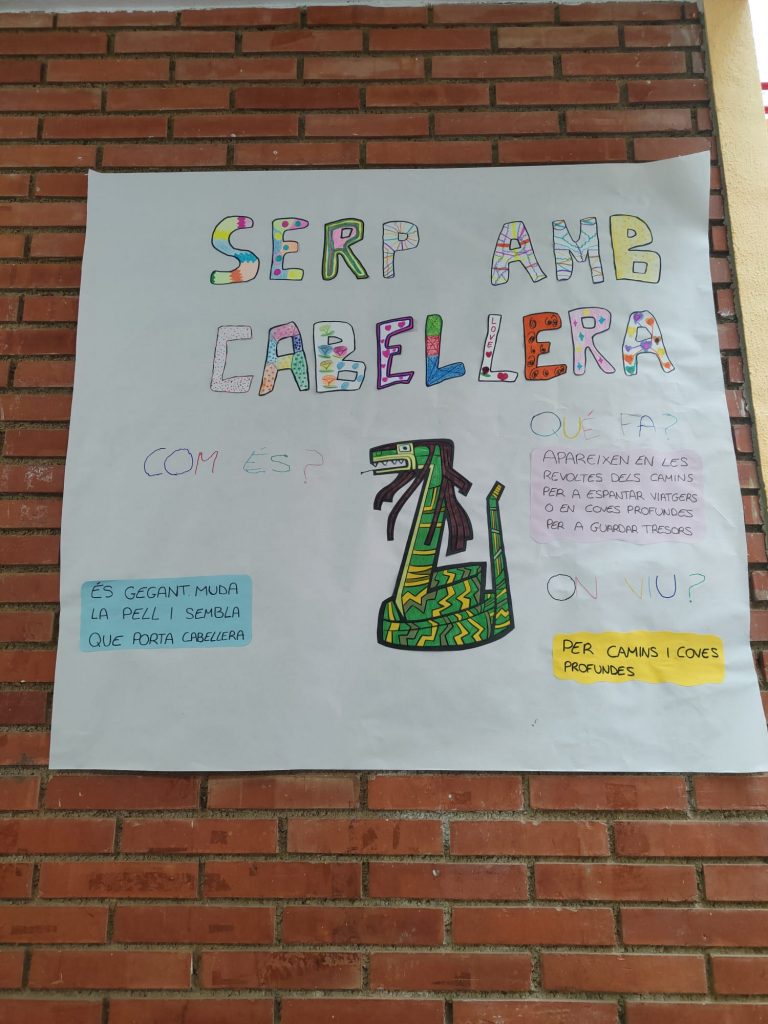 SERP AMB
CABELLERA
LOVE
COM ÉS?
ÉS GEGANT. MUDA
LA PELL I SEMBLA
QUE PORTA CABELLERA
QUÉ FA?
APAREIXEN EN LES
REVOLTES DELS CAMINS
PER A ESPANTAR VIATGERS
O EN COVES PROFUNDES
PER A GUARDAR TRESORS
ON VIU?
PER CAMINS I COVES
PROFUNDES